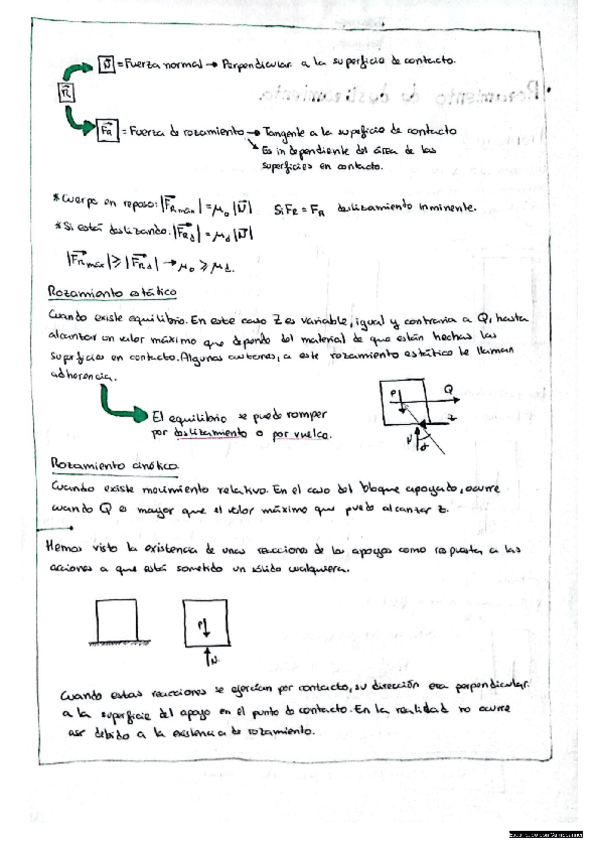 N = Fuerza normal → Perpendicular a la superficie de contacto.
R
FR = Fuerza de rozamiento → Tangente a la superficie de contacto
Es independiente del área de las
superficies en contacto.
* Cuerpo en reposo: |FR máx| = μo |N| Si FR = FR deslizamiento inminente.
* Si está deslizando: |FR d| = μd |N|
|FR máx| ≥ |FR d| → μo ≥ μd.
Rozamiento estático
Cuando existe equilibrio. En este caso Z es variable, igual y contraria a Q, hasta
alcanzar un valor máximo que depende del material de que están hechas las
superficies en contacto. Algunos autores, a este rozamiento estático le llaman
adherencia.
El equilibrio se puede romper
por deslizamiento o por vuelco.
P
Q
Z
N
Rozamiento cinético.
Cuando existe movimiento relativo. En el caso del bloque apoyado, ocurre
cuando Q es mayor que el valor máximo que puede alcanzar Z.
Hemos visto la existencia de unas reacciones de los apoyos como respuesta a las
acciones a que está sometido un sólido cualquiera.
P
N
Cuando estas reacciones se ejercían por contacto, su dirección era perpendicular
a la superficie del apoyo en el punto de contacto. En la realidad no ocurre
así debido a la existencia de rozamiento.